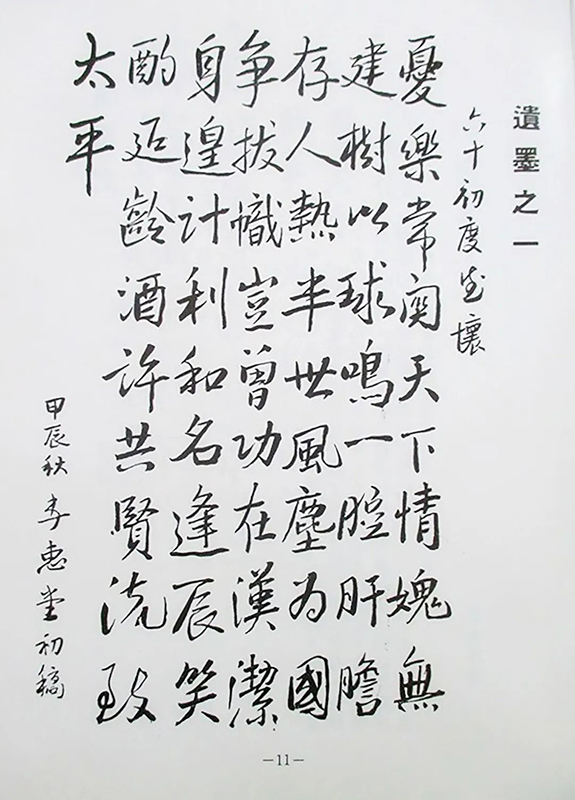 遺墨之一
六十初度感懷
憂樂常關天下情媿無
建樹以球鳴一腔肝膽
存人熱半世風塵為國
争拔幟豈曾功在漢潔
身遑計利和名逢辰笑
酌延齡酒許共賢流致
太平
甲辰秋 李惠堂初稿
-11-